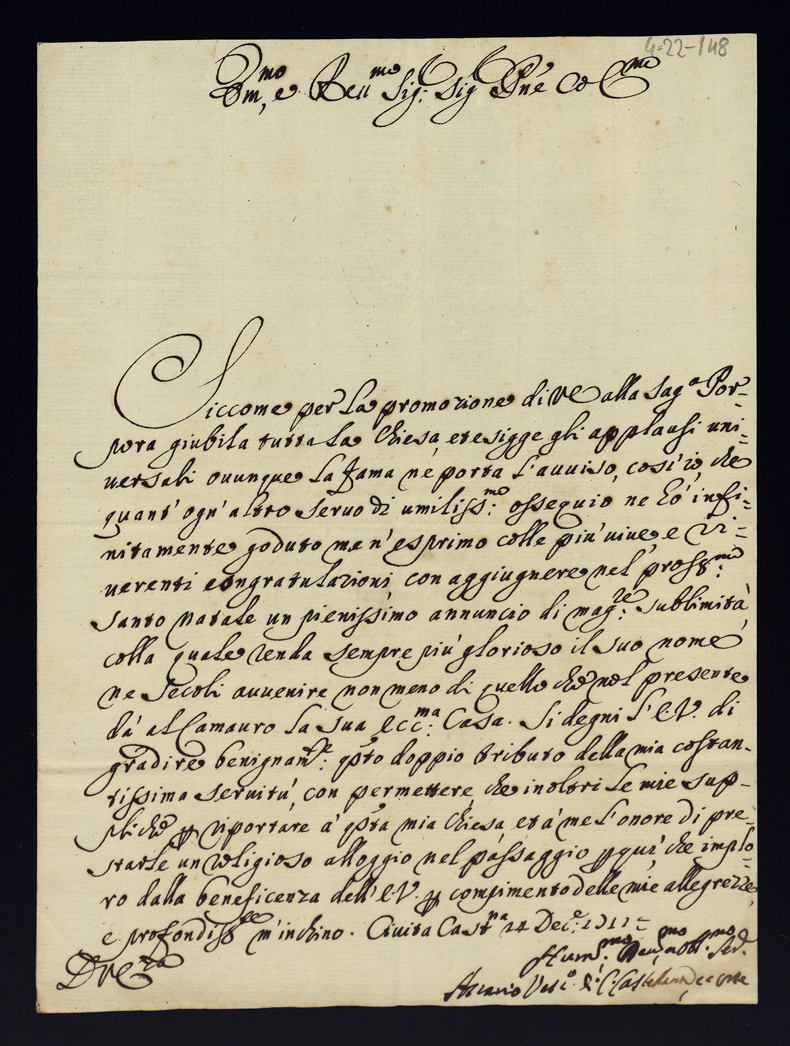 4-22-148
Em.mo, e Reu.mo Sig: Sig P̃ne Col.mo
Siccome per la promozione di VE alla Sag.a Por-
pora giubila tutta la Chiesa, et esigge gli applausi uni-
uersali ouunque la fama ne porta l'auuiso, così io, che
quant'ogn'altro seruo di umiliss.mo ossequio ne hò infi-
nitamente goduto me n'esprimo colle più uiue, e ri-
uerenti congratulazioni con aggiugnere nel pross.mo
santo natale un pienissimo annuncio di mag.re sublimità,
colla quale renda sempre più glorioso il suo nome
ne secoli auuenire non meno di quello che nel presente
dà al Camauro la sua Ecc.ma Casa. Si degni l'E.V. di
gradire benignam.te: q̃sto doppio tributo della mia costan-
tissima seruitù, con permettere che inoltri le mie sup-
pliche p riportare à q̃sta mia Chiesa, et à me l'onore di pre-
starle un religioso alloggio nel passaggio p quì che implo-
ro dalla beneficenza dell'E.V. p compimento delle mie allegrezze,
e profondiss.te m'inchino. Ciuita Cast.na 14 Dec.e
D V E.za
Hum.mo Deu.mo Obl.mo Ser.
Vesc.o di C. Castellana, e Orte